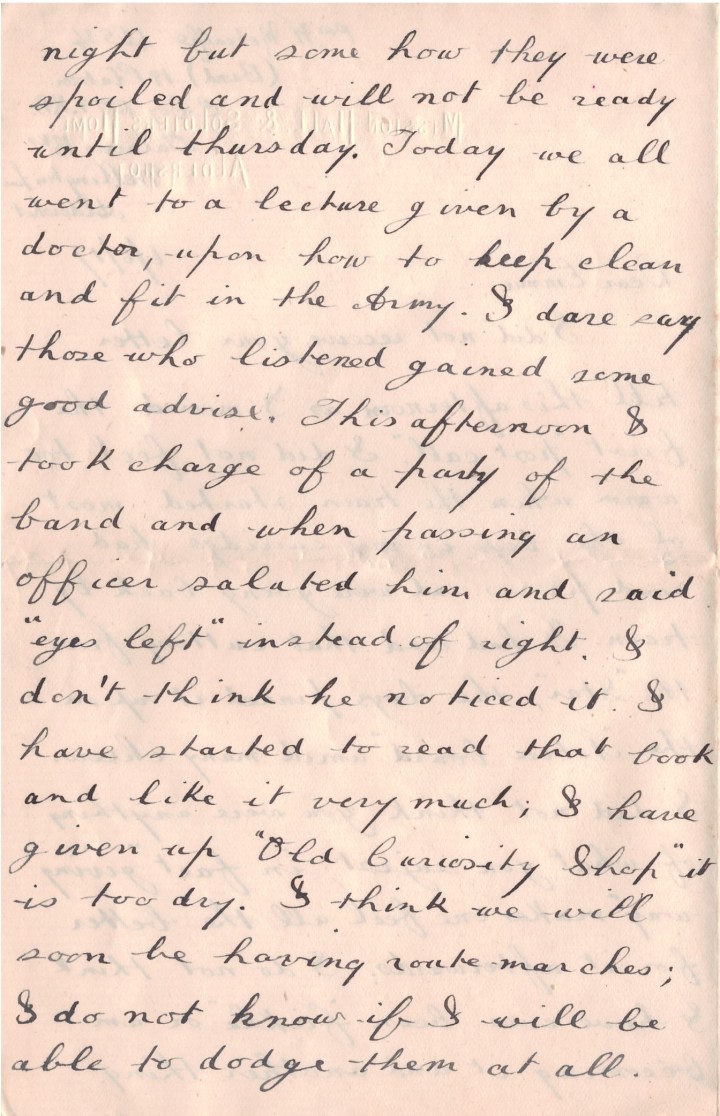 night but some how they were
spoiled and will not be ready
until thursday. Today we all
went to a lecture given by a
doctor, upon how to keep clean
and fit in the Army. I dare say
those who listened gained some
good advise. This afternoon I
took charge of a party of the
band and when passing an
officer saluted him and said
"eyes left" instead of right. I
don't think he noticed it. I
have started to read that book
and like it very much; I have
given up "Old Curiosity Shop" it
is too dry. I think we will
soon be having route marches;
I do not know if I will be
able to dodge them at all.
MISSION HALL & SOLDIERS HOME
ALDERSHOT